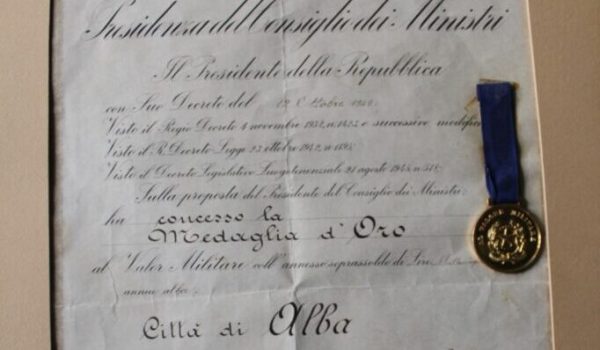 Presidenza del Consiglio dei Ministri
Il Presidente della Repubblica
con Suo Decreto del
Visto il Regio Decreto 4 novembre 1932, n. 1423 e successive
Visto il R. Decreto Legge 23 ottobre 1942, n. 1195
Visto il Decreto Legislativo Luogotenenziale 21 agosto 1945, n. 518
Sulla proposta del Presidente del Consiglio dei Ministri
ha concesso la
Medaglia d'Oro
al Valor Militare coll'annesso soprassoldo di Lire
annue alla
Città di Alba
AL VALORE MILITARE